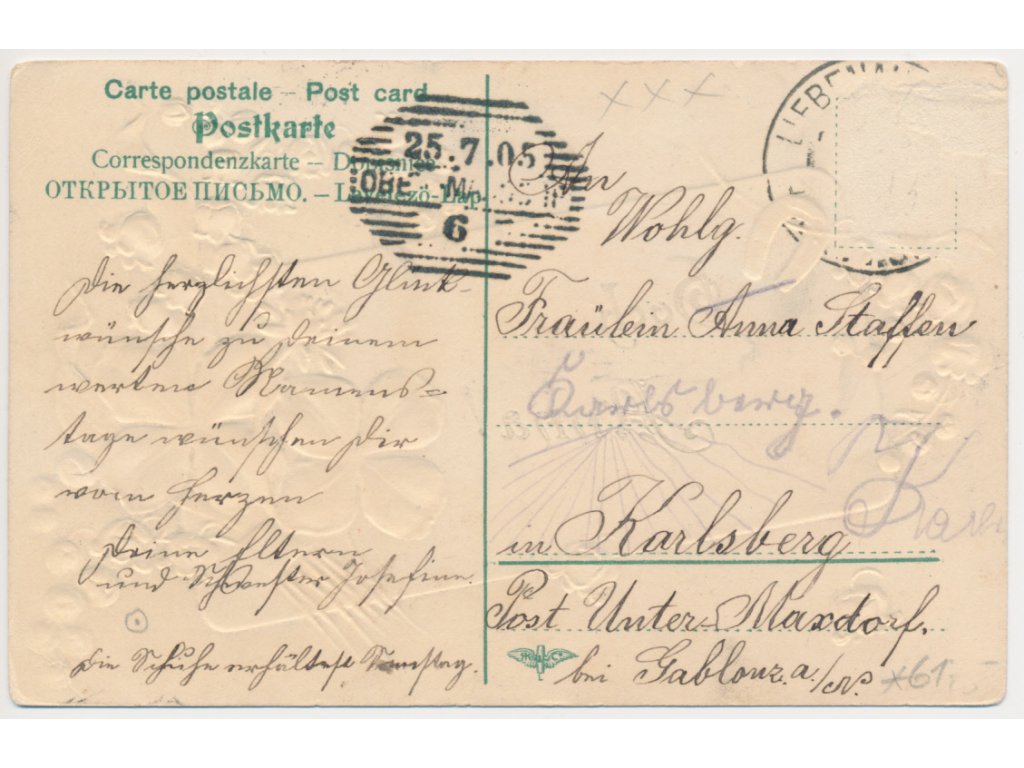 Carte postale – Post card
Postkarte
Correspondenzkarte –
ОТКРЫТОЕ ПИСЬМО. –
25.7.05
6
LIEBENAU
Die herzlichsten Glück-
wünsche zu Deinem
werten Namens-
tage wünschen Dir
vom Herzen
Deine Eltern
und Schwester Josefine.
Die Schuhe erhältest Samstag.
XXX
An
Wohlg.
Fräulein Anna Staffen
Karlsberg.
in Karlsberg
Post Unter-Maxdorf.
bei Gablonz a./N.
*61.-